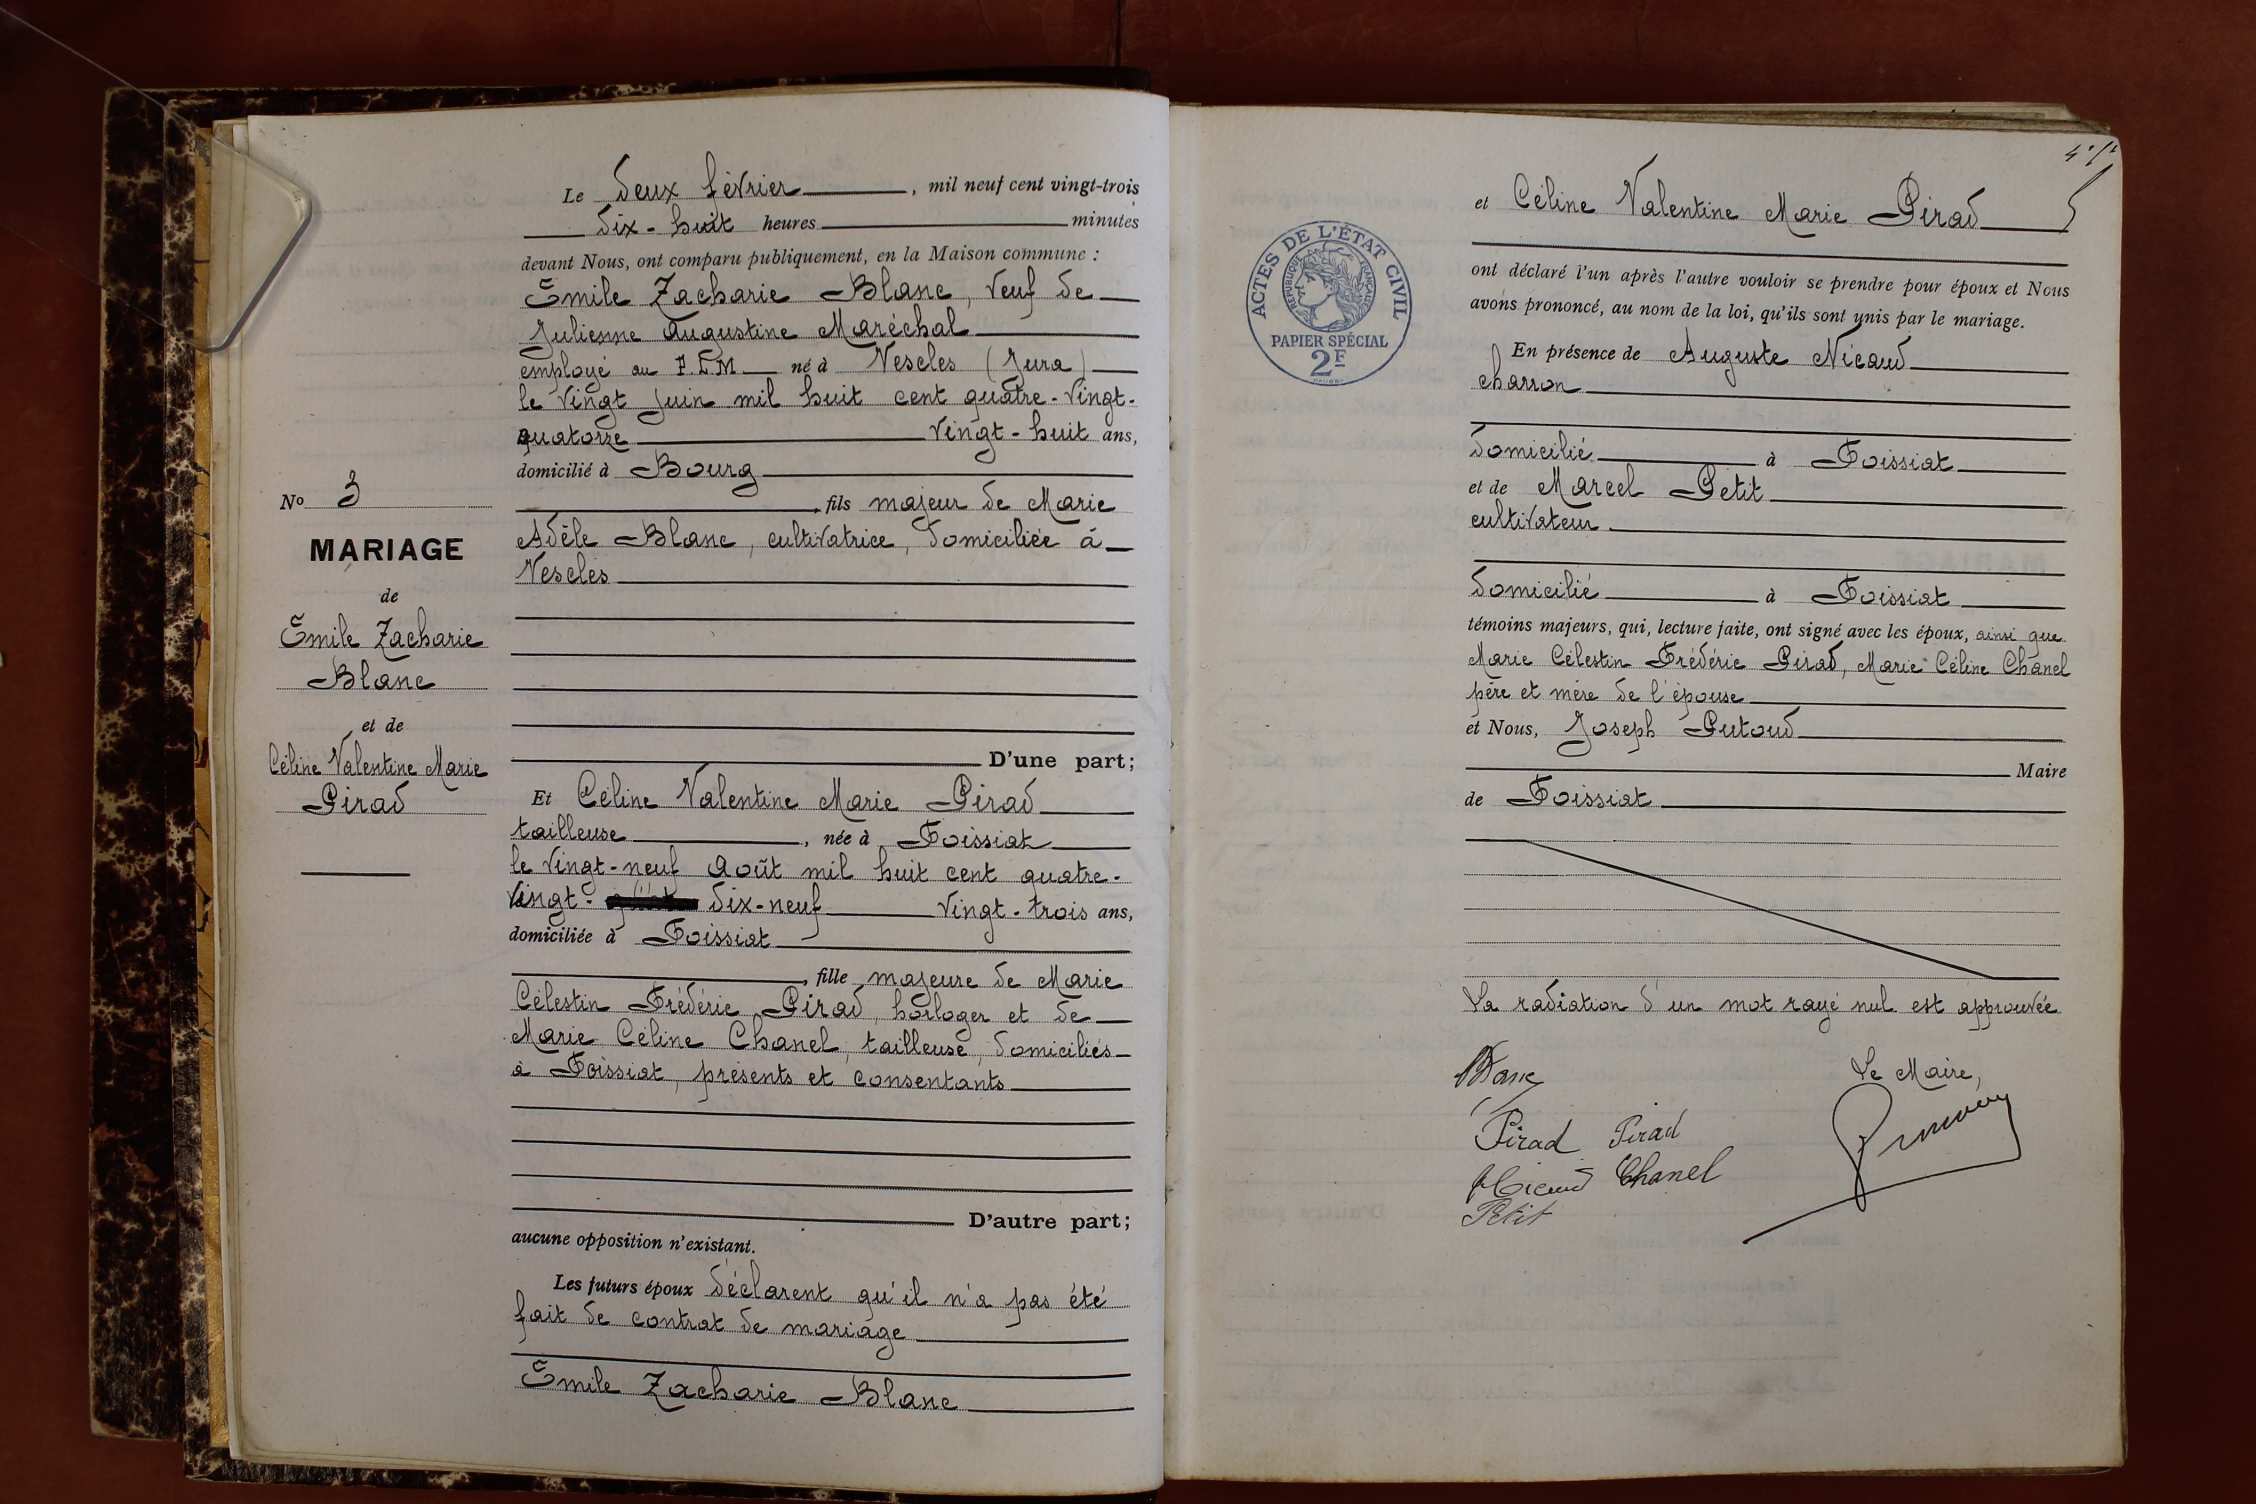 Le deux février, mil neuf cent vingt-trois
dix-huit heures minutes
devant Nous, ont comparu publiquement, en la Maison commune :
Emile Zacharie Blanc, veuf de
Julienne Augustine Maréchal
employé au P.L.M né à Vescles (Jura)
le vingt juin mil huit cent quatre-vingt-
quatorze vingt-huit ans,
domicilié à Bourg
, fils majeur de Marie
Adèle Blanc, cultivatrice, domiciliée à
Vescles
D'une part;
Et Céline Valentine Marie Pirad
tailleuse, née à Foissiat
le vingt-neuf août mil huit cent quatre-
vingt- dix-neuf vingt-trois ans,
domiciliée à Foissiat
, fille majeure de Marie
Célestin Frédéric Pirad, horloger et de
Marie Céline Chanel, tailleuse, domiciliés
à Foissiat, présents et consentants
D'autre part;
aucune opposition n'existant.
Les futurs époux déclarent qu'il n'a pas été
fait de contrat de mariage
Emile Zacharie Blanc
No 3
MARIAGE
de
Emile Zacharie
Blanc
et de
Céline Valentine Marie
Pirad
et Céline Valentine Marie Pirad
ont déclaré l'un après l'autre vouloir se prendre pour époux et Nous
avons prononcé, au nom de la loi, qu'ils sont unis par le mariage.
En présence de Auguste Nicaud
charron
domicilié à Foissiat
et de Marcel Petit
cultivateur
domicilié à Foissiat
témoins majeurs, qui, lecture faite, ont signé avec les époux, ainsi que
Marie Célestin Frédéric Pirad, Marie Céline Chanel
père et mère de l'épouse
et Nous, Joseph Putoud
Maire
de Foissiat
La radiation d'un mot rayé nul est approuvée
Blanc
Le Maire,
Pirad Pirad
Nicaud Chanel
Petit
ACTES DE L'ÉTAT CIVIL
RÉPUBLIQUE FRANÇAISE
PAPIER SPÉCIAL
2F